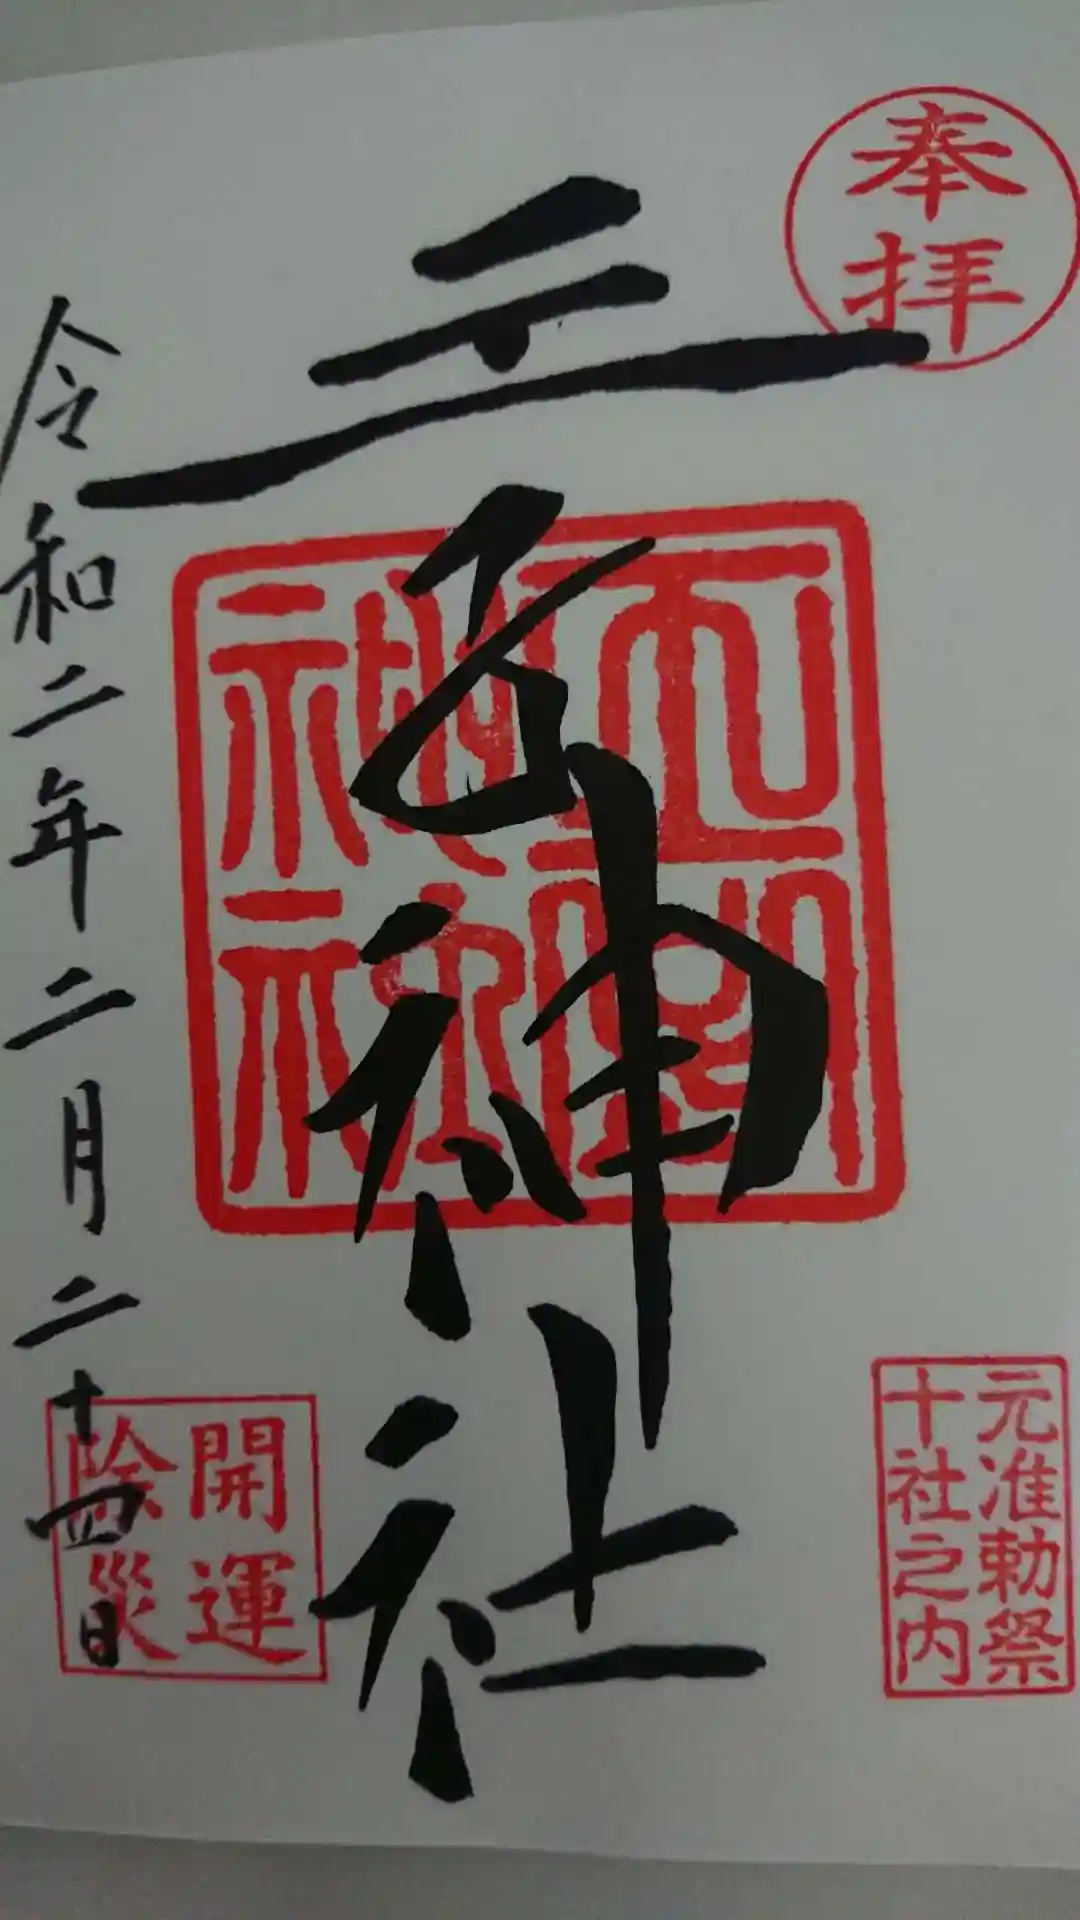 奉拝
王子神社
元准勅祭
十社之内
開運
除災
令和二年二月二十四日